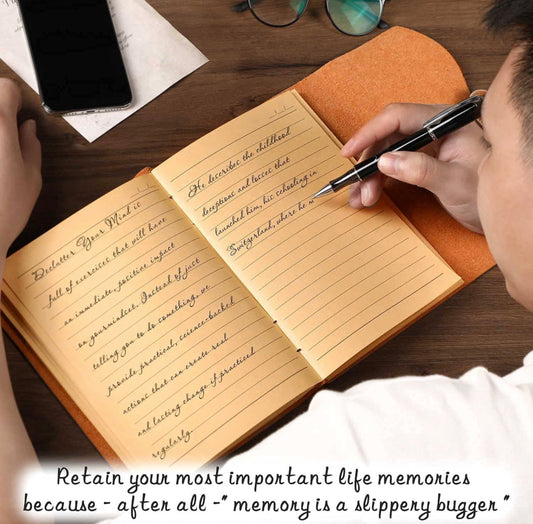 Declutter Your Mind is
full of exercises that will have
an immediate, positive impact
on yourmindset. Instead of just
telling you to do something, we
provide practical, science-backed
actions that can create real
and lasting change if practiced
regularly.
He describes the childhood
deceptions and losses that
launched him, his schooling in
Switzerland, where he
Retain your most important life memories
because - after all -" memory is a slippery bugger "